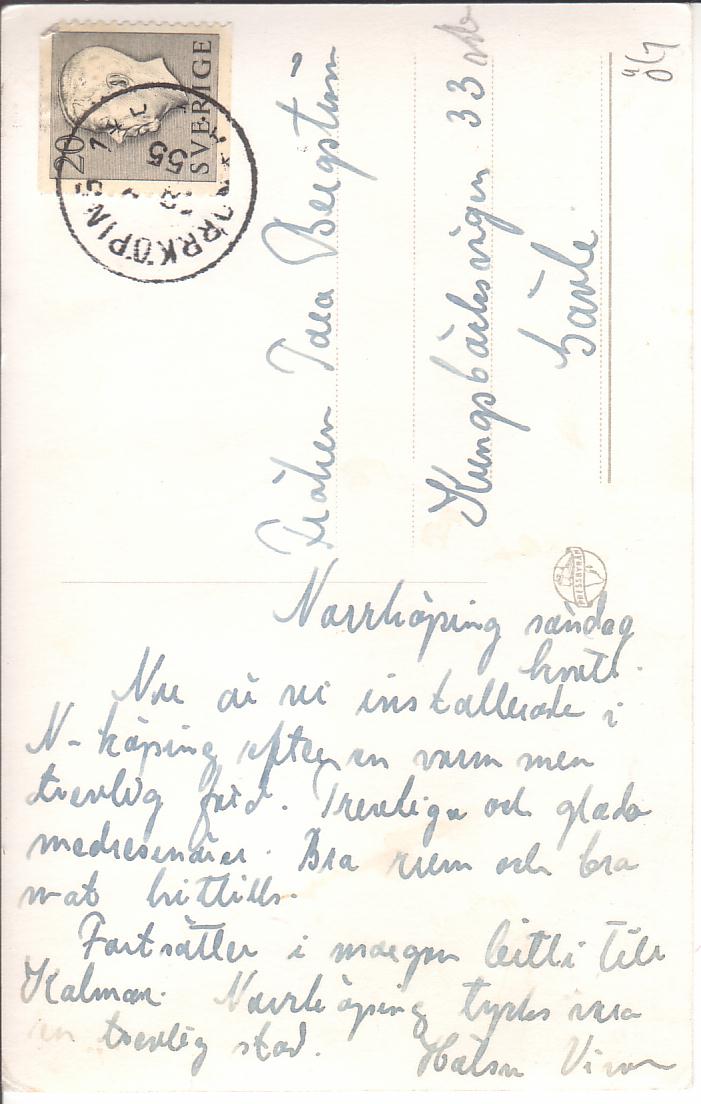 SVERIGE
20
NORRKÖPING
55
Fröken Tora Bergström
Kungsbäcksvägen 33
Gävle
ÖG
PRESSBYRÅN
Norrköping söndag
kväll.
Nu är vi installerade i
N-köping efter en varm men
trevlig färd. Trevliga och glada
medresenärer. Bra rum och bra
mat hittills.
Fortsätter i morgon bitti till
Kalmar. Norrköping tycks vara
en trevlig stad. Hälsn